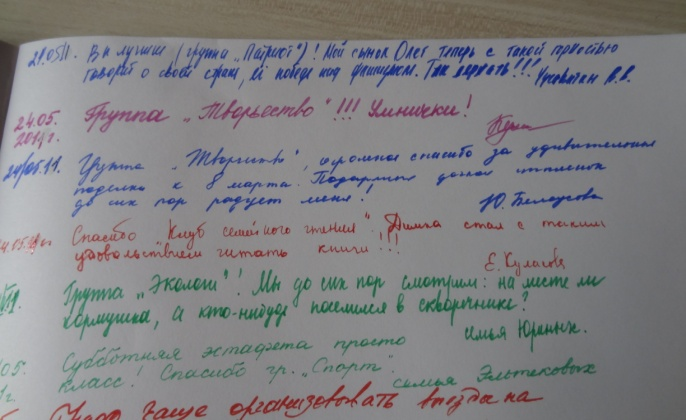 24.05.11. Вы лучшие (группа „Патриот")! Мой сынок Олег теперь с такой гордостью
говорит о своей стране, её победе над фашизмом. Так держать!!!
24.05. Группа „Творчество"!!! Умнички!
2011г.
24/05.11. Группа „Творчество", огромное спасибо за удивительные
поделки к 8 марта. Подаренный дочкой
до сих пор радует меня! Ю. Белоусова
24.05. Спасибо „Клуб семейного чтения". Димка стал с таким
удовольствием читать книги!!! Е. Куласова
11. Группа „Экологи"! Мы до сих пор смотрим: на месте ли
кормушка, а кто-нибудь поселился в скворечнике?
семья Юриных.
05. Субботняя эстафета просто
класс! Спасибо гр. „Спорт".
семья
Надо чаще организовывать выезды на